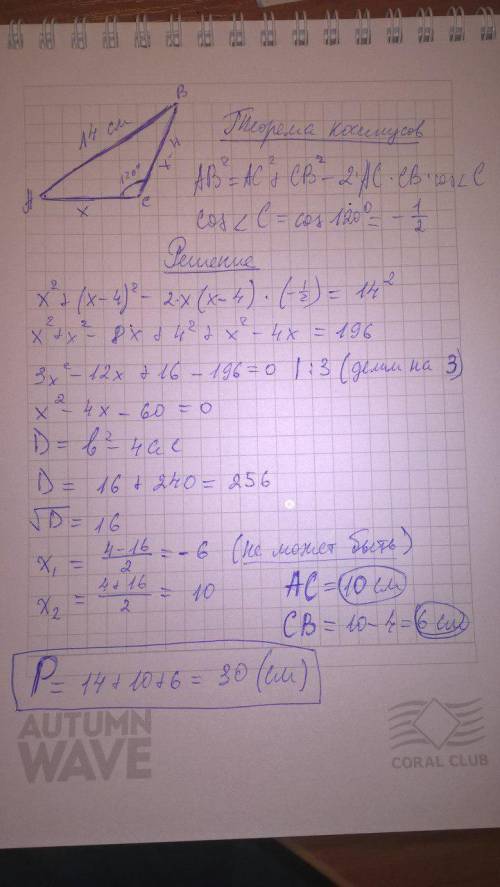 B
14 см
x-4
120°
A
x
C
Теорема косинусов
AB² = AC² + CB² - 2·AC·CB·cos∠C
cos∠C = cos 120° = -1/2
Решение
x² + (x-4)² - 2·x(x-4)·(-1/2) = 14²
x² + x² - 8x + 4² + x² - 4x = 196
3x² - 12x + 16 - 196 = 0 |:3 (делим на 3)
x² - 4x - 60 = 0
D = b² - 4ac
D = 16 + 240 = 256
√D = 16
x₁ = (4-16)/2 = -6 (не может быть)
x₂ = (4+16)/2 = 10
AC = 10 см
CB = 10-4 = 6 см
P = 14+10+6 = 30 (см)
AUTUMN
WAVE
CORAL CLUB